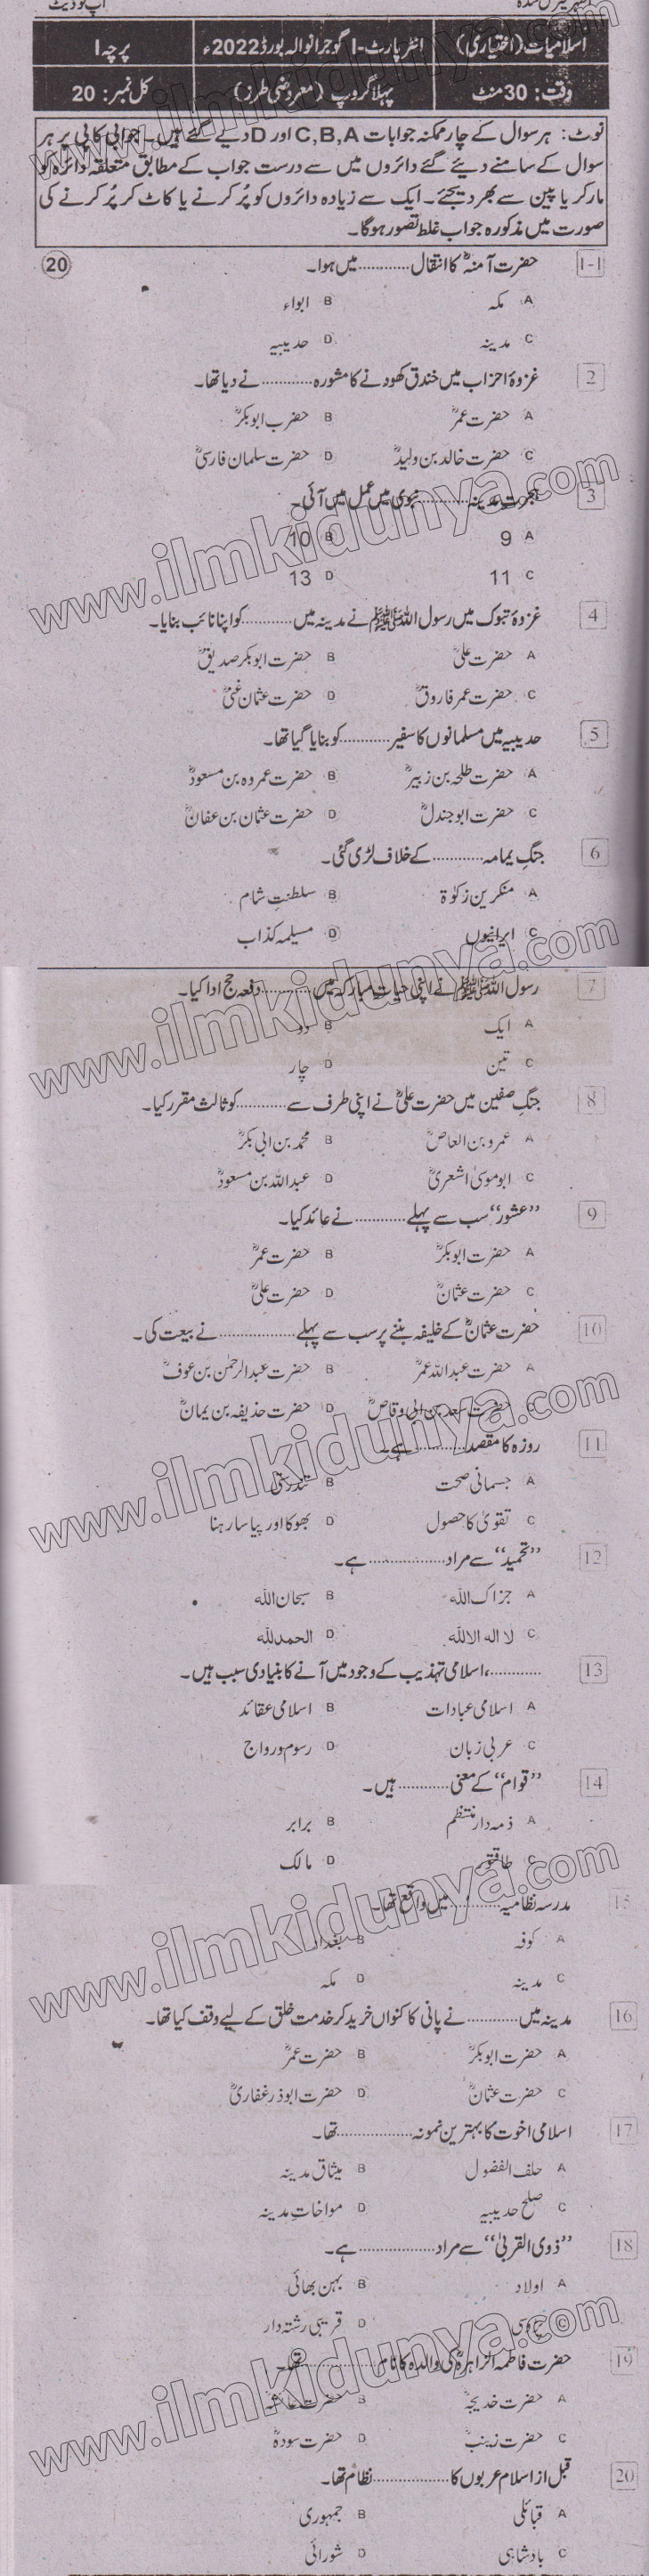 اسلامیات (اختیاری) انٹر پارٹ-I گوجرانوالہ بورڈ 2022ء پرچہ I
وقت: 30 منٹ پہلا گروپ (معروضی طرز) کل نمبر: 20
نوٹ: ہر سوال کے چار ممکنہ جوابات C,B,A اور D دیے گئے ہیں۔ جوابی کاپی پر ہر
سوال کے سامنے دیئے گئے دائروں میں سے درست جواب کے مطابق متعلقہ دائرہ کو
مارکر یا پین سے بھر دیجئے۔ ایک سے زیادہ دائروں کو پُر کرنے یا کاٹ کر پُر کرنے کی
صورت میں مذکورہ جواب غلط تصور ہوگا۔
1-1 حضرت آمنہؓ کا انتقال ............ میں ہوا۔ 20
A مکہ B ابواء
C مدینہ D حدیبیہ
2 غزوۂ احزاب میں خندق کھودنے کا مشورہ ............ نے دیا تھا۔
A حضرت عمرؓ B حضرب ابوبکرؓ
C حضرت خالد بن ولیدؓ D حضرت سلمان فارسیؓ
3 ہجرت مدینہ ............ نبوی میں عمل میں آئی۔
A 9 B 10
C 11 D 13
4 غزوۂ تبوک میں رسول اللہﷺ نے مدینہ میں ............ کو اپنا نائب بنایا۔
A حضرت علیؓ B حضرت ابوبکر صدیقؓ
C حضرت عمر فاروقؓ D حضرت عثمان غنیؓ
5 حدیبیہ میں مسلمانوں کا سفیر ............ کو بنایا گیا تھا۔
A حضرت طلحہ بن زبیرؓ B حضرت عمروہ بن مسعودؓ
C حضرت ابوجندلؓ D حضرت عثمان بن عفانؓ
6 جنگِ یمامہ ............ کے خلاف لڑی گئی۔
A منکرین زکوٰۃ B سلطنتِ شام
C ایرانیوں D مسیلمہ کذاب
7 رسول اللہﷺ نے اپنی حیات مبارکہ میں ............ دفعہ حج ادا کیا۔
A ایک B دو
C تین D چار
8 جنگِ صفین میں حضرت علیؓ نے اپنی طرف سے ............ کو ثالث مقرر کیا۔
A عمرو بن العاصؓ B محمد بن ابی بکرؓ
C ابو موسیٰ اشعریؓ D عبداللہ بن مسعودؓ
9 ”عشور“ سب سے پہلے ............ نے عائد کیا۔
A حضرت ابوبکرؓ B حضرت عمرؓ
C حضرت عثمانؓ D حضرت علیؓ
10 حضرت عثمانؓ کے خلیفہ بننے پر سب سے پہلے .................. نے بیعت کی۔
A حضرت عبداللہ عمرؓ B حضرت عبدالرحمٰن بن عوفؓ
C حضرت سعد بن ابی وقاصؓ D حضرت حذیفہ بن یمانؓ
11 روزہ کا مقصد ............ ہے۔
A جسمانی صحت B تندرستی
C تقویٰ کا حصول D بھوکا اور پیاسا رہنا
12 ”تحمید“ سے مراد .................. ہے۔
A جزاک اللہ B سبحان اللہ
C لا الہ الا اللہ D الحمدللہ
13 ............، اسلامی تہذیب کے وجود میں آنے کا بنیادی سبب ہیں۔
A اسلامی عبادات B اسلامی عقائد
C عربی زبان D رسوم و رواج
14 ”قوام“ کے معنی ............ ہیں۔
A ذمہ دار منتظم B برابر
C طاقتور D مالک
15 مدرسہ نظامیہ ............ میں واقع تھا۔
A کوفہ B بغداد
C مدینہ D مکہ
16 مدینہ میں ............ نے پانی کا کنواں خرید کر خدمت خلق کے لیے وقف کیا تھا۔
A حضرت ابوبکرؓ B حضرت عمرؓ
C حضرت عثمانؓ D حضرت ابوذر غفاریؓ
17 اسلامی اخوت کا بہترین نمونہ .................. تھا۔
A حلف الفضول B میثاق مدینہ
C صلح حدیبیہ D مواخاتِ مدینہ
18 ”ذوی القربیٰ“ سے مراد .................. ہے۔
A اولاد B بہن بھائی
C پڑوسی D قریبی رشتہ دار
19 حضرت فاطمہ الزاہرہؓ کی والدہ کا نام .................. تھا۔
A حضرت خدیجہؓ B حضرت عائشہؓ
C حضرت زینبؓ D حضرت سودہؓ
20 قبل از اسلام عربوں کا .................. نظام تھا۔
A قبائلی B جمہوری
C بادشاہی D شورائی
www.ilmkidunya.com
www.ilmkidunya.com
www.ilmkidunya.com
www.ilmkidunya.com
www.ilmkidunya.com
www.ilmkidunya.com